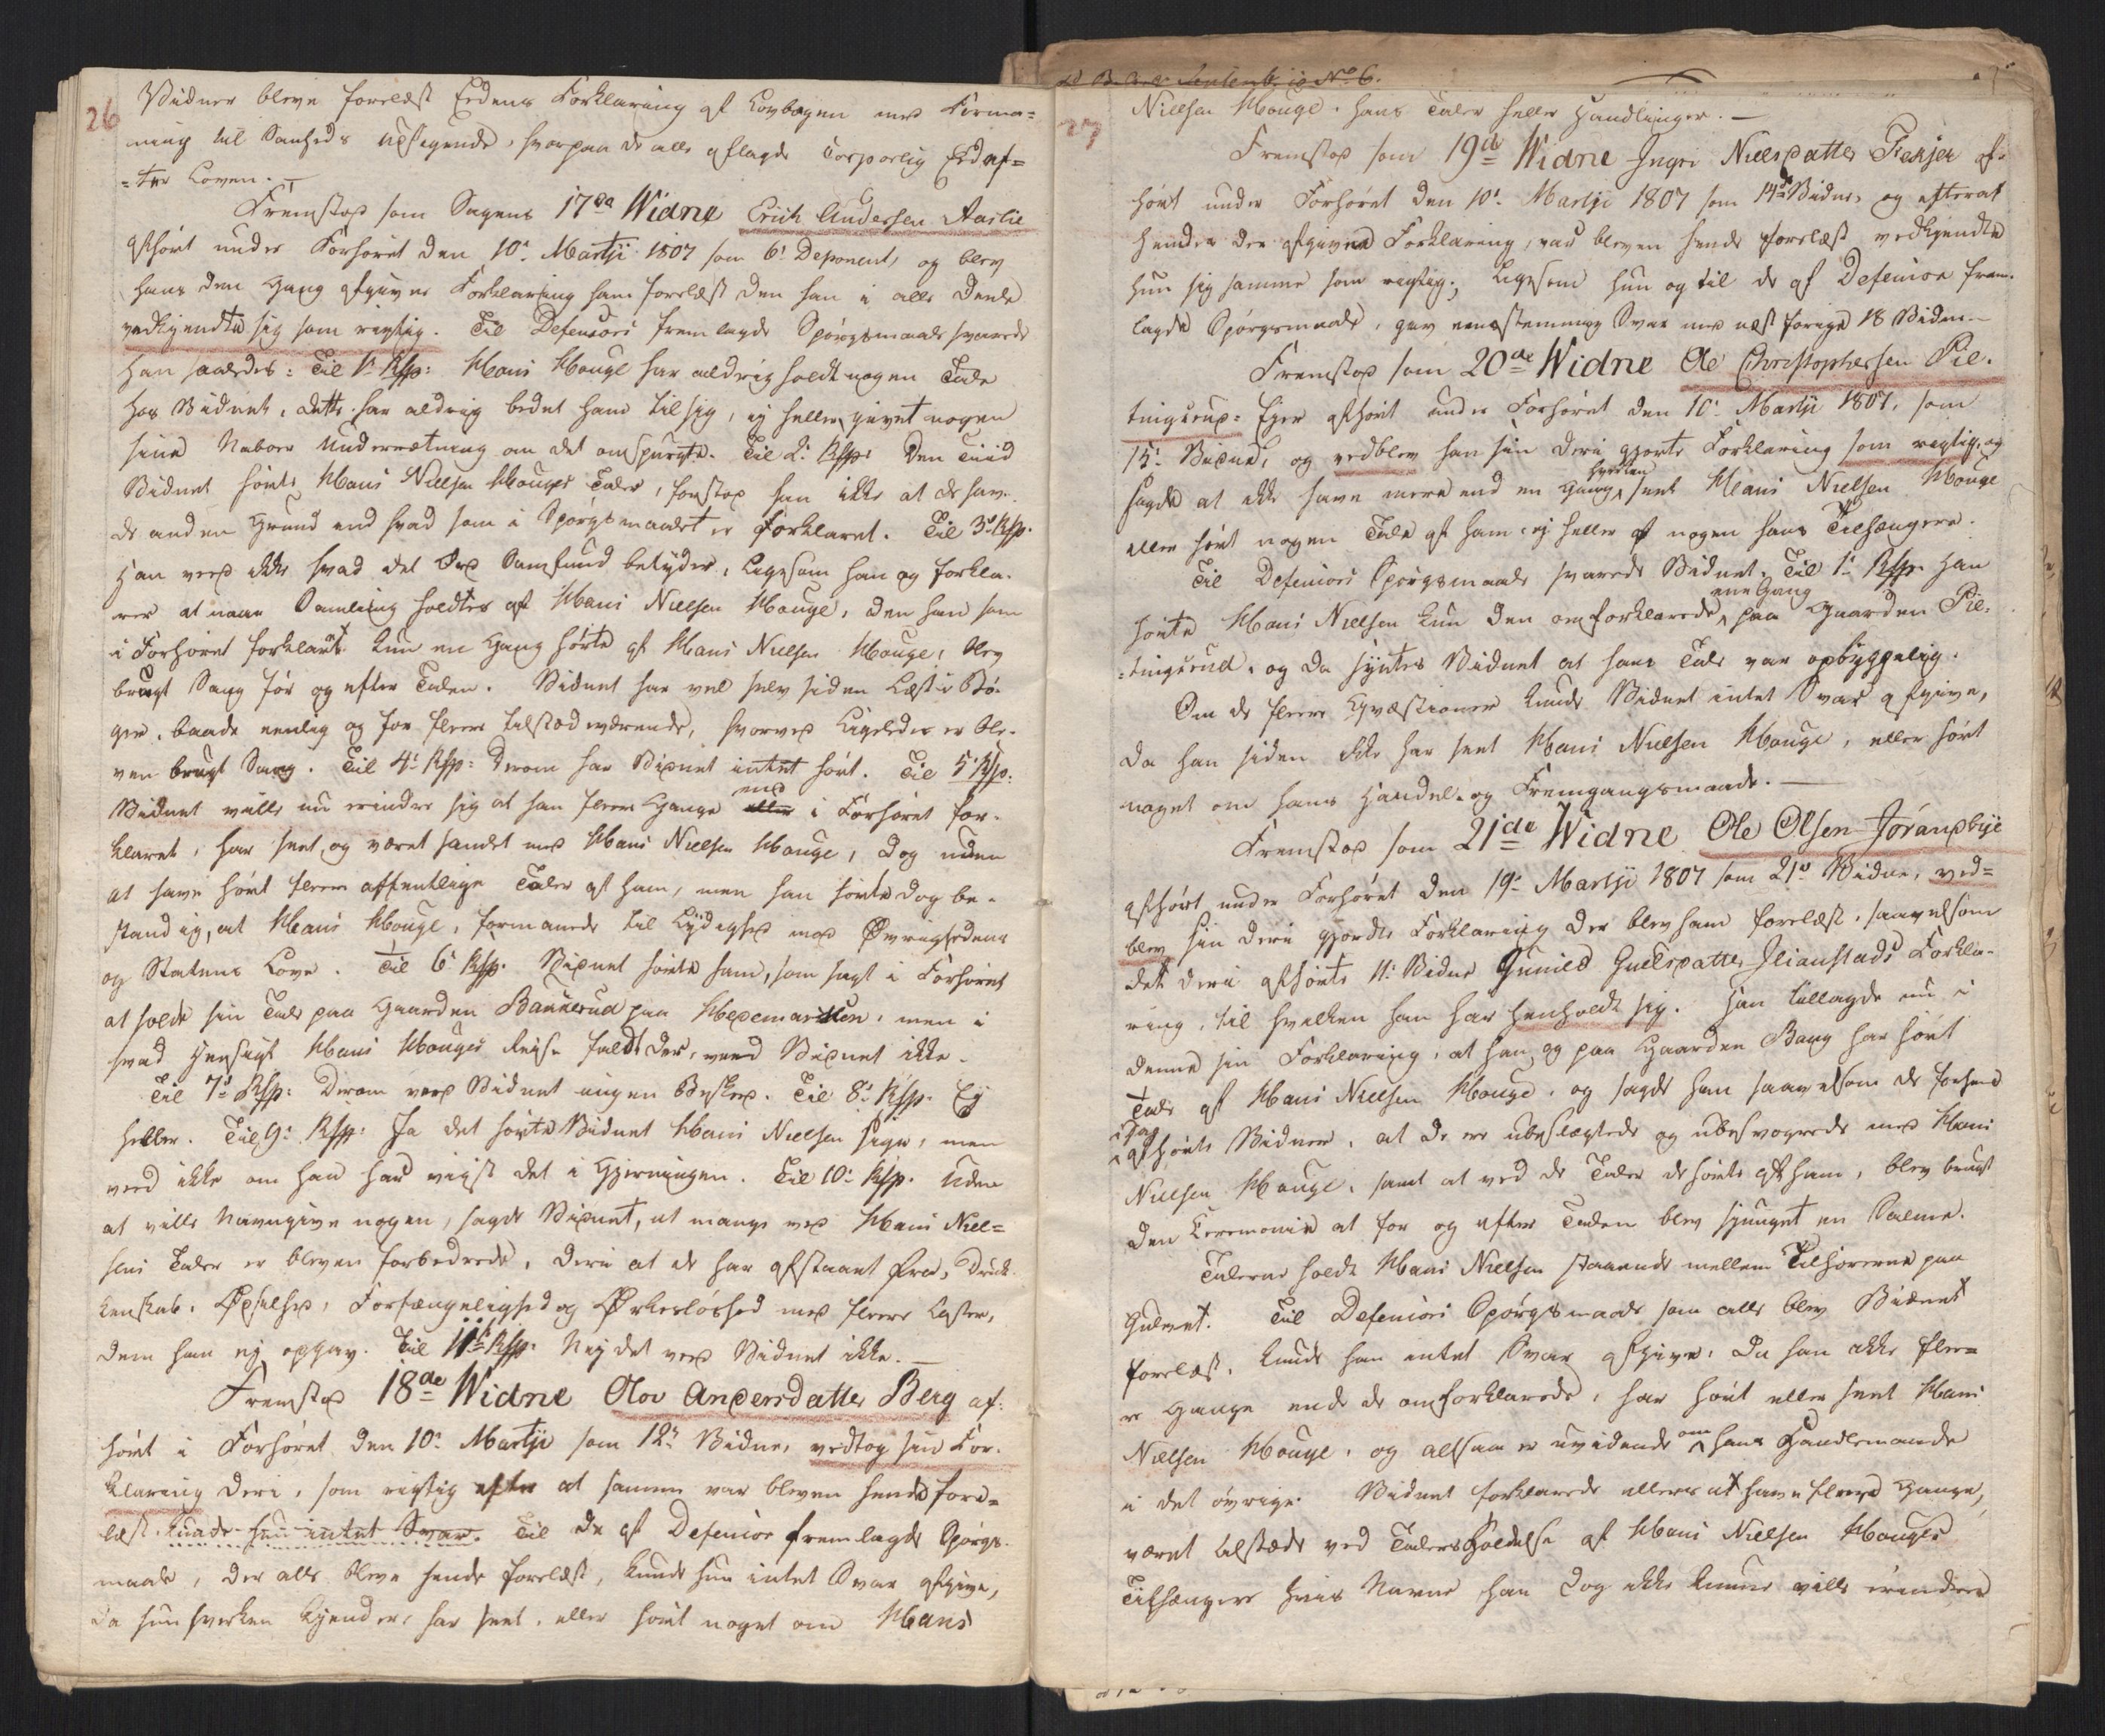 26
Vidner bleve forelæst Eedens Forklaring af Lovbogen med Forma=
ning til Sanheds udsigende, hvorpaa de alle aflagde Corporlig Eed ef=
=ter Loven. —
Fremstod som Sagens 17de Widne Erich Andersen Aaslie
afhørt under Forhøret den 10de Martji 1807 som 6te Deponent, og blev
hans den Gang afgivne Forklaring ham forelæst den han i alle Deele
vedkjendte sig som rigtig. Til Defensors fremlagde Spørgsmaale svarede
Han saaledes: Til 1te Qsp: Hans Houge har aldrig holdt nogen Tale
hos Vidnet, dette har aldrig bedet ham til sig, ej heller givet nogen
sine Naboer Underretning om det omspurgte. Til 2det Qsp: Den Tiid
Vidnet hørte Hans Nielsen Houges Taler, forstod han ikke at de hav-
de anden Grund end hvad som i Spørgsmaalet er forklaret. Til 3die Qsp.
Han veed ikke hvad det Ord Samfund betyder, ligesom han og forkla-
rer at naar Samling holdtes af Hans Nielsen Houge, den han som
i Forhøret forklart kun en Gang hørte af Hans Nielsen Houge, blev
brugt Sang før og efter Talen. Vidnet har vel selv siden læst i Bø-
ger, baade eenlig og for fleere tilstædeværende, hvorved ligeledes er ble-
ven brugt Sang. Til 4de Qsp: Derom har Vidnet intet hørt. Til 5te Qsp:
Vidnet ville nu erindre sig at han fleere Gange end i Forhøret for-
klaret, har seet og været samlet med Hans Nielsen Houge, dog uden
at have hørt fleere offentlige Taler af ham, men han hørte dog be-
standig, at Hans Houge, formanede til Lydighed mod Øvrighedens
og Statens Love. Til 6te Qsp. Vidnet hørte ham, som sagt i Forhøret
at holde sin Tale paa Gaarden Bannerud paa Hedemarken, men i
hvad Hensigt Hans Houges Reise faldt der, veed Vidnet ikke.
Til 7de Qsp: Derom veed Vidnet ingen Besked. Til 8de Qsp. Ej
heller. Til 9de Qsp: Ja det hørte Vidnet Hans Nielsen sige, men
veed ikke om han har viist det i Gjerningen. Til 10de Qsp. Uden
at ville navngive nogen, sagde Vidnet, at mange ved Hans Niel=
sens Taler er bleven forbedrede, deri at de har afstaaet fra, Druk-
kenskab, Ødselhed, Forfængelighed og Ørkesløshed med fleere Laster,
dem han ej opgav. Til 11te Qsp: Nej det veed Vidnet ikke. —
Fremstod 18de Widne Olov Andersdatter Berg af-
hørt i Forhøret den 10de Martji som 12te Vidne, vedtog sin For-
klaring deri, som rigtig efter at samme var bleven hende fore=
læst. kunde hun intet Svar. Til de af Defensor fremlagde Spørgs-
maale, der alle bleve hende forelæst, kunde hun intet Svar afgive,
Da hun hverken kjender, har seet, eller hørt noget om Hans
No 6.
27
Nielsen Houge, hans Taler heller Handlinger. —
Fremstod som 19de Widne Ingri Nielsdatter Fiekjer af-
hørt under Forhøret den 10de Martji 1807 som 14de Vidne, og efterat
hendes der afgivne Forklaring, var bleven hende forelæst vedkjendte
hun sig samme som rigtig; ligesom hun og til de af Defensor frem-
lagde Spørgsmaale, gav eenstemmig Svar med næst forrige 18 Vidne. —
Fremstod som 20de Widne Ole Christophersen Pil-
tingsrud=Ejer afhørt under Forhøret den 10de Martji 1807, som
15de Vidne, og vedblev han sin deri gjorte Forklaring som rigtig, og
sagde at ikke have mere end en Gang hverken seet Hans Nielsen Houge
eller hørt nogen Tale af ham, ej heller af nogen hans Tilhængere.
Til Defensors Spørgsmaale svarede Vidnet. Til 1te Qsp. Han
hørte Hans Nielsen kun den omforklarede ene Gang paa Gaarden Pil-
=tingsrud, og da syntes Vidnet at hans Tale var opbyggelig.
Om de fleere Qvæstioner kunde Vidnet intet Svar afgive,
da han siden ikke har seet Hans Nielsen Houge, eller hørt
noget om hans Handel- og Fremgangsmaade. —
Fremstod som 21de Widne Ole Olsen Jørandbye
afhørt under Forhøret den 19de Martji 1807 som 21de Vidne, ved=
blev sin deri gjordte Forklaring der blev ham forelæst, saavelsom
det deri afhørte 11te Vidne Gunild Gulsdatter Forkla-
ring, til hvelken han har henholdt sig. Han tillagde nu i
denne sin Forklaring, at han og paa Gaarden Bang har hørt
Tale af Hans Nielsen Houge, og sagde han saavelsom de forhen
i Dag afhørte Vidner, at de er ubeslægtede og ubesvogrede med Hans
Nielsen Houge, samt at ved de Taler de hørte af ham, blev brugt
den Ceremonie at for og efter Talen blev sjunget en Salme.
Talerne holdt Hans Nielsen staaende mellem Tilhørerne paa
Gulvet. Til Defensors Spørgsmaale som alle blev Vidnet
forelæst, kunde han intet Svar afgive, da han ikke flee=
re Gange end de omforklarede, har hørt eller seet Hans
Nielsen Houge, og altsaa er uvidende om hans Handlemaade
i det øvrige. Vidnet forklarede ellers at have fleere Gange,
været tilstæde ved Talers Holdelse af Hans Nielsen Houges
Tilhængere hvis Navne han dog ikke kunne ville erindre